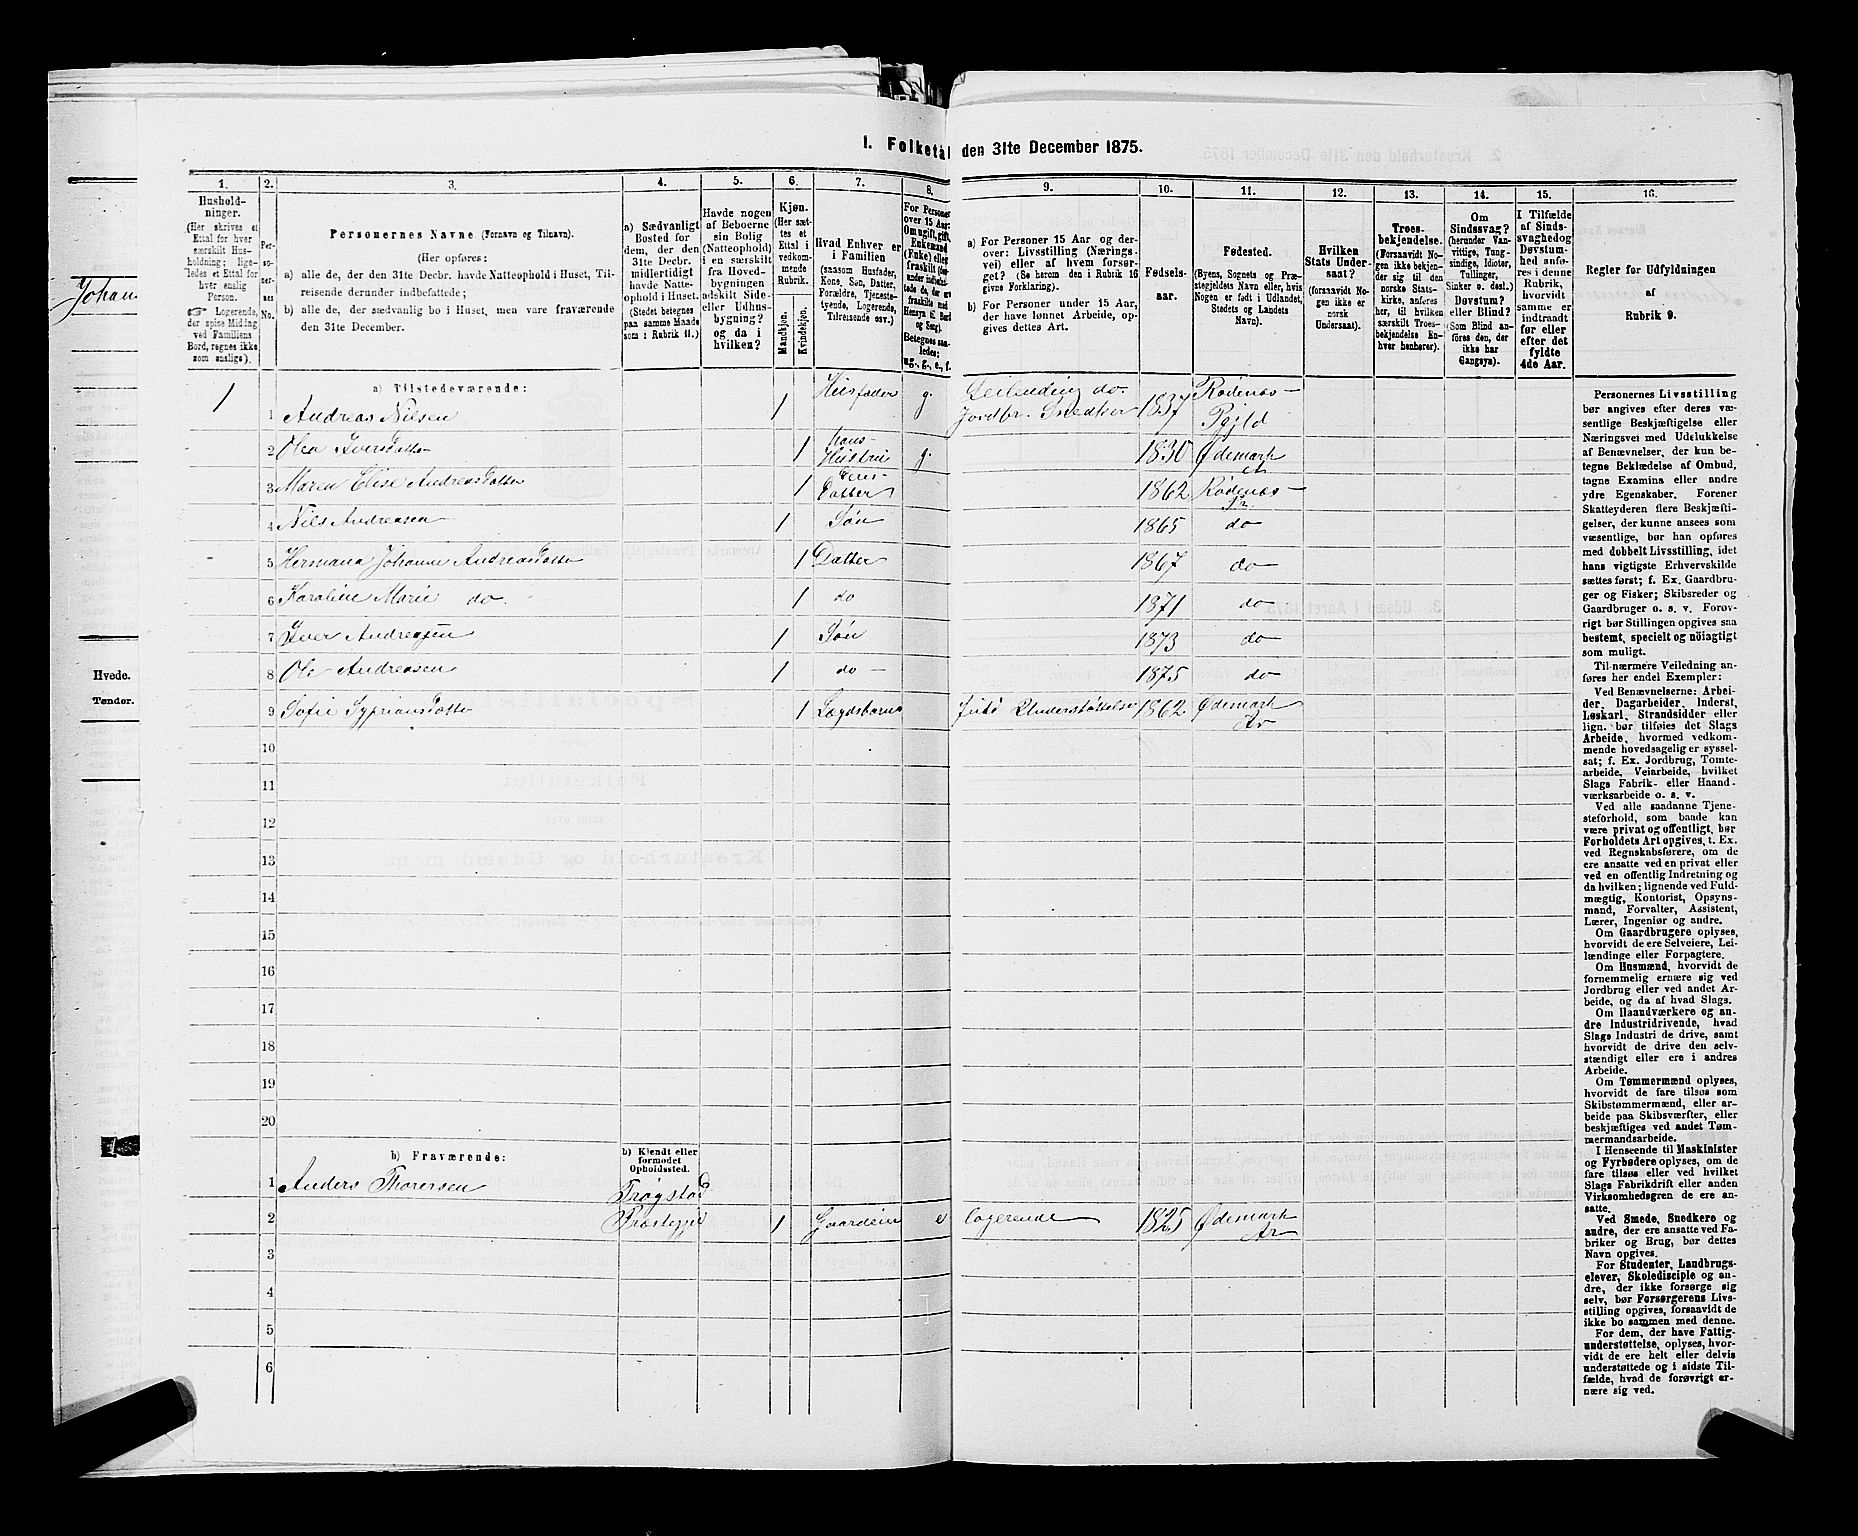 Johan
Hvede.
Tønder.
1. Folketal den 31te December 1875.
1.
Hushold-
ninger.
(Her skrives et
Ettal for hver
særskilt Hus-
holdning; lige-
ledes et Ettal for
hver enslig
Person.
Logerende,
der spise Middag
ved Familiens
Bord, regnes ikke
som enslige).
2.
Per-
so-
ner-
nes
No.
3.
Personernes Navne (Fornavn og Tilnavn).
(Her opføres:
a) alle de, der den 31te Decbr. havde Natteophold i Huset, Til-
reisende derunder indbefattede;
b) alle de, der sædvanlig bo i Huset, men vare fraværende
den 31te December.
4.
a) Sædvanligt
Bosted for
dem, der den
31te Decbr.
midlertidigt
havde Natte-
ophold i Huset.
(Stedet betegnes
paa samme Maade
som i Rubrik 11.)
5.
Havde nogen
af Beboerne
sin Bolig
(Natteophold)
i en særskilt
fra Hoved-
bygningen
adskilt Side-
eller Udhus-
bygning?
og da i
hvilken?
6.
Kjøn.
(Her sæt-
tes et
Ettal i
vedkom-
mende
Rubrik.
Mandkjøn.
Kvindekjøn.
7.
Hvad Enhver er
i Familien
(saasom Husfader,
Kone, Søn, Datter,
Forældre, Tjeneste-
tyende, Logerende,
Tilreisende osv.)
8.
For Personer
over 15 Aar:
Om ugift, gift,
Enkemand
(Enke) eller
fraskilt
Betegnes saa-
ledes:
ug., g., e., f.
9.
a) For Personer 15 Aar og der-
over: Livsstilling (Nærings-
vei) eller af hvem forsør-
get? (Se herom den i Rubrik 16
givne Forklaring).
b) For Personer under 15 Aar,
der have lønnet Arbeide, op-
gives dettes Art.
10.
Fødsels-
aar.
11.
Fødested.
(Byens, Sognets og Præ-
stegjeldets Navn eller, hvis
Nogen er født i Udlandet,
Stedets og Landets
Navn).
12.
Hvilken
Stats Under-
saat?
(forsaavidt No-
gen ikke er
norsk
Undersaat).
13.
Troes-
bekjendelse.
(Forsaavidt No-
gen ikke bekjen-
der sig til den
norske Stats-
kirke, anføres
her, til hvilken
særskilt Troes-
bekjendelse En-
hver henhører).
14.
Om
Sindssvag?
(herunder Van-
vittige, Tung-
sindige, Idioter,
Tullinger,
Sinker o. desl.)
Døvstum?
eller Blind?
(Som Blind an-
føres den, der
ikke har
Gangsyn).
15.
I Tilfælde
af Sinds-
svaghed og
Døvstum-
hed anfø-
res i denne
Rubrik,
hvorvidt
samme er
indtraadt
før eller
efter det
fyldte
4de Aar.
16.
Regler for Udfyldningen
af
Rubrik 9.
a) Tilstedeværende:
1 1 Andreas Nilsen 1 Husfader g. Leilending do. Jordbr. Snedker 1837 Rødenæs Pgjld
2 Olea Iversdatter 1 hans Hustru g. 1830 Ødemark
3 Maren Elise Andreasdatter 1 deres Datter 1862 Rødenæs Pr.
4 Nils Andreasen 1 Søn 1865 do
5 Hermana Johanne Andreasdatter 1 Datter 1867 do
6 Karoline Marie do. 1 do 1871 do
7 Iver Andreasen 1 Søn 1873 do
8 Ole Andreasen 1 do 1875 do
9 Sofie Sypriansdatter 1 Lægdsbarn Understøttelse 1862 Ødemark
10
11
12
13
14
15
16
17
18
19
20
b) Fraværende:
b) Kjendt eller
formodet
Opholdssted.
1 Anders Thoresen Trøgstad
2 Præstegjd 1 Gaardeier e Logerende 1825 Ødemark
3
4
5
6
Personernes Livsstilling
bør angives efter deres væ-
sentlige Beskjæftigelse eller
Næringsvei med Udelukkelse
af Benævnelser, der kun be-
tegne Beklædelse af Ombud,
tagne Examina eller andre
ydre Egenskaber. Forener
Skatteyderen flere Beskjæfti-
gelser, der kunne ansees som
væsentlige, bør han opføres
med dobbelt Livsstilling, idet
hans vigtigste Erhvervskilde
sættes først; f. Ex. Gaardbru-
ger og Fisker; Skibsreder og
Gaardbruger o. s. v. Forøv-
rigt bør Stillingen opgives saa
bestemt, specielt og nøiagtigt
som muligt.
Til nærmere Veiledning an-
føres her endel Exempler:
Ved Benævnelserne: Arbei-
der, Dagarbeider, Inderst,
Løskarl, Strandsidder eller
lign. bør tilføies det Slags
Arbeide, hvormed vedkom-
mende hovedsagelig er syssel-
sat; f. Ex. Jordbrug, Tomte-
arbeide, Veiarbeide, hvilket
Slags Fabrik- eller Haand-
værksarbeide o. s. v.
Ved alle saadanne Tjene-
steforhold, som baade kan
være privat og offentligt, bør
Forholdets Art opgives, t. Ex.
ved Regnskabsførere, om de
ere ansatte ved en privat eller
ved en offentlig Indretning og
da hvilken; lignende ved Fuld-
mægtig, Kontorist, Opsyns-
mand, Forvalter, Assistent,
Lærer, Ingeniør og andre.
Om Gaardbrugere oplyses,
hvorvidt de ere Selveiere, Lei-
lændinge eller Forpagtere.
Om Husmænd, hvorvidt de
fornemmelig ernære sig ved
Jordbrug eller ved andet Ar-
beide, og da af hvad Slags.
Om Haandværkere og an-
dre Industridrivende, hvad
Slags Industri de drive, samt
hvorvidt de drive den selv-
stændigt eller ere i andres
Arbeide.
Om Tømmermænd oplyses,
hvorvidt de fare tilsøs som
Skibstømmermænd, eller ar-
beide paa Skibsværfter, eller
beskjæftiges ved andet Tøm-
mermandsarbeide.
I Henseende til Maskinister
og Fyrbødere oplyses, om de
fare tilsøs eller ved hvilket
Slags Fabrikdrift eller anden
Virksomhedsgren de ere an-
satte.
Ved Smede, Snedkere og
andre, der ere ansatte ved Fa-
briker og Brug, bør dettes
Navn opgives.
For Studenter, Landbrugs-
elever, Skoledisciple og an-
dre, der ikke forsørge sig
selv, bør Forsørgerens Livs-
stilling opgives, forsaavidt de
ikke bo sammen med denne.
For dem, der have Fattig-
understøttelse, oplyses, hvor-
vidt de ere helt eller delvis
understøttede og i sidste Til-
fælde, hvad de forøvrigt er-
nære sig ved.